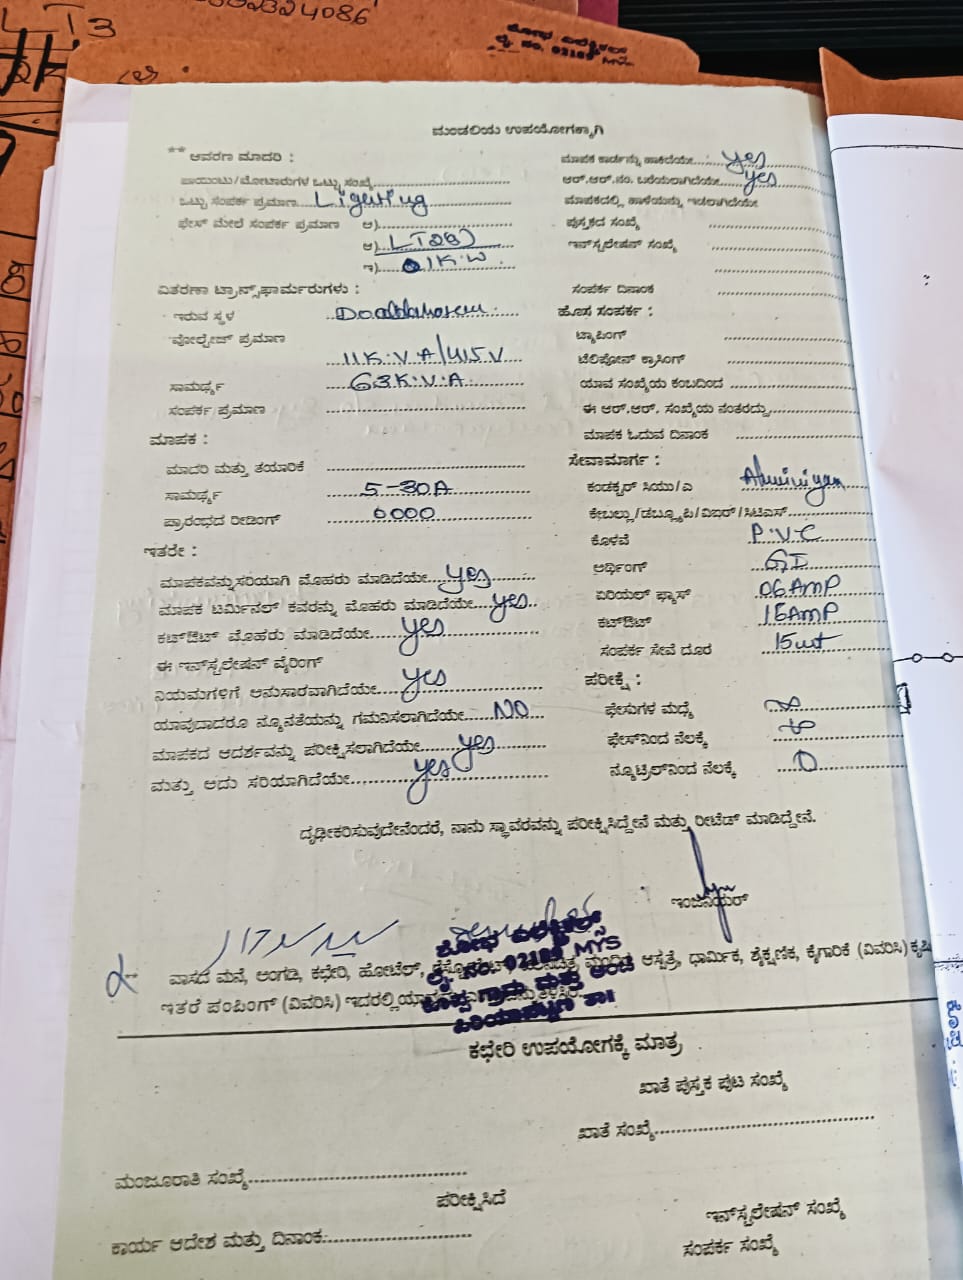 LT3
324086
ಶೋಭ ಎಲೆಕ್ಟ್ರಿಕಲ್ಸ್
ಲೈ. ನಂ. 02189 MYS
ಮಂಡಲಿಯ ಉಪಯೋಗಕ್ಕಾಗಿ
** ಆವರಣ ಮಾದರಿ :
ಪಾಯಿಂಟು/ಮೋಟಾರುಗಳ ಒಟ್ಟು ಸಂಖ್ಯೆ
ಒಟ್ಟು ಸಂಪರ್ಕ ಪ್ರಮಾಣ Lighting
ಫೇಸ್ ಮೇಲೆ ಸಂಪರ್ಕ ಪ್ರಮಾಣ ಅ)
ಆ)
ಇ) 1K.W
ವಿತರಣಾ ಟ್ರಾನ್ಸ್‌ಫಾರ್ಮರುಗಳು :
ಇರುವ ಸ್ಥಳ
ವೋಲ್ಟೇಜ್ ಪ್ರಮಾಣ
11K.V.A/415V
ಸಾಮರ್ಥ್ಯ 63K.V.A
ಸಂಪರ್ಕ ಪ್ರಮಾಣ
ಮಾಪಕ :
ಮಾದರಿ ಮತ್ತು ತಯಾರಿಕೆ
ಸಾಮರ್ಥ್ಯ 5-30A
ಪ್ರಾರಂಭದ ರೀಡಿಂಗ್ 0000
ಇತರೇ :
ಮಾಪಕವನ್ನು ಸರಿಯಾಗಿ ಮೊಹರು ಮಾಡಿದೆಯೇ yes
ಮಾಪಕ ಟರ್ಮಿನಲ್ ಕವರನ್ನು ಮೊಹರು ಮಾಡಿದೆಯೇ yes
ಕಟ್‌ಔಟ್ ಮೊಹರು ಮಾಡಿದೆಯೇ yes
ಈ ಇನ್‌ಸ್ಟಲೇಷನ್ ವೈರಿಂಗ್
ನಿಯಮಗಳಿಗೆ ಅನುಸಾರವಾಗಿದೆಯೇ yes
ಯಾವುದಾದರೂ ನ್ಯೂನತೆಯನ್ನು ಗಮನಿಸಲಾಗಿದೆಯೇ NO
ಮಾಪಕದ ಆದರ್ಶವನ್ನು ಪರೀಕ್ಷಿಸಲಾಗಿದೆಯೇ yes
ಮತ್ತು ಅದು ಸರಿಯಾಗಿದೆಯೇ yes
ಮಾಪಕ ಕಾರ್ಡನ್ನು ಹಾಕಿದೆಯೇ yes
ಆರ್.ಆರ್.ನಂ. ಬರೆಯಲಾಗಿದೆಯೇ yes
ಮಾಪಕದಲ್ಲಿ ಹಾಳೆಯನ್ನು ಇಡಲಾಗಿದೆಯೇ
ಪುಸ್ತಕದ ಸಂಖ್ಯೆ
ಇನ್‌ಸ್ಟಲೇಷನ್ ಸಂಖ್ಯೆ
ಸಂಪರ್ಕ ದಿನಾಂಕ
ಹೊಸ ಸಂಪರ್ಕ :
ಟ್ಯಾಪಿಂಗ್
ಟೆಲಿಫೋನ್ ಕ್ರಾಸಿಂಗ್
ಯಾವ ಸಂಖ್ಯೆಯ ಕಂಬದಿಂದ
ಈ ಆರ್.ಆರ್. ಸಂಖ್ಯೆಯ ನಂತರದ್ದು
ಮಾಪಕ ಓದುವ ದಿನಾಂಕ
ಸೇವಾಮಾರ್ಗ :
ಕಂಡಕ್ಟರ್ ಸಿಯು/ಎ
ಕೇಬಲ್ಲು/ಡಬ್ಲ್ಯೂಪಿ/ವಿಐಆರ್/ಸಿಟಿಎಸ್
ಕೊಳವೆ P.V.C
ಅರ್ಥಿಂಗ್ GI
ಏರಿಯಲ್ ಫ್ಯೂಸ್ 06AMP
ಕಟ್‌ಔಟ್ 15AMP
ಸಂಪರ್ಕ ಸೇವೆ ದೂರ 15mt
ಪರೀಕ್ಷೆ :
ಫೇಸುಗಳ ಮಧ್ಯೆ
ಫೇಸ್‌ನಿಂದ ನೆಲಕ್ಕೆ
ನ್ಯೂಟ್ರಲ್‌ನಿಂದ ನೆಲಕ್ಕೆ 0
ದೃಢೀಕರಿಸುವುದೇನೆಂದರೆ, ನಾನು ಸ್ಥಾವರವನ್ನು ಪರೀಕ್ಷಿಸಿದ್ದೇನೆ ಮತ್ತು ರೀಟೆಡ್ ಮಾಡಿದ್ದೇನೆ.
ಇಂಜಿನಿಯರ್
ಶೋಭ ಎಲೆಕ್ಟ್ರಿಕಲ್ಸ್
ಲೈ. ನಂ. 02189 MYS
ಕೊಪ್ಪ ಗ್ರಾಮ ಮತ್ತು ಅಂಚೆ
ಪಿರಿಯಾಪಟ್ಟಣ ತಾ॥
ವಾಸದ ಮನೆ, ಅಂಗಡಿ, ಕಛೇರಿ, ಹೋಟೆಲ್, ಮಂದಿರ, ಆಸ್ಪತ್ರೆ, ಧಾರ್ಮಿಕ, ಶೈಕ್ಷಣಿಕ, ಕೈಗಾರಿಕೆ (ವಿವರಿಸಿ) ಕೃಷಿ
ಇತರೆ ಪಂಪಿಂಗ್ (ವಿವರಿಸಿ) ಇದರಲ್ಲಿ
ಕಛೇರಿ ಉಪಯೋಗಕ್ಕೆ ಮಾತ್ರ
ಖಾತೆ ಪುಸ್ತಕ ಪುಟ ಸಂಖ್ಯೆ
ಖಾತೆ ಸಂಖ್ಯೆ
ಮಂಜೂರಾತಿ ಸಂಖ್ಯೆ
ಪರೀಕ್ಷಿಸಿದೆ
ಇನ್‌ಸ್ಟಲೇಷನ್ ಸಂಖ್ಯೆ
ಕಾರ್ಯ ಆದೇಶ ಮತ್ತು ದಿನಾಂಕ
ಸಂಪರ್ಕ ಸಂಖ್ಯೆ